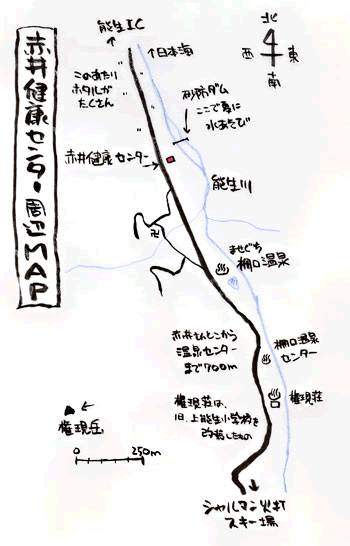 赤井健康センター周辺MAP
能生IC
↑日本海
北
西
東
南
このあたり
ホタルが
たくさん
砂防ダム
ここで夏に
水あそび
赤井健康センター
能生川
卍
ませぐち
柵口温泉
赤井さんとこから
温泉センター
まで700m
柵口温泉
センター
権現荘
権現荘は、
旧、上能生小学校を
改築したもの
権現岳
0
250m
シャルマン火打
スキー場